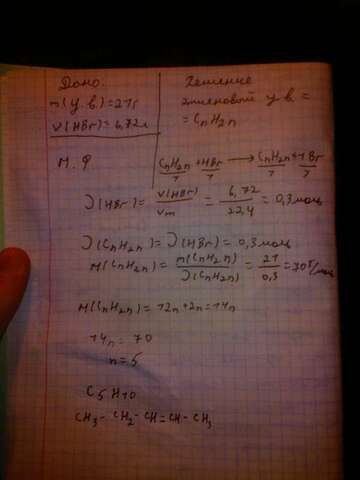 Дано:
m(у.в.)=21г
V(HBr)=6,72л
М.Ф
Решение
этиленовый у.в. =
= CnH2n
CnH2n + HBr → CnH2n+1Br
1 1 1
ν(HBr) = V(HBr)/Vm = 6,72/22,4 = 0,3моль
ν(CnH2n) = ν(HBr) = 0,3моль
M(CnH2n) = m(CnH2n)/ν(CnH2n) = 21/0,3 = 70г/моль
M(CnH2n) = 12n+2n=14n
14n = 70
n=5
C5H10
CH3-CH2-CH=CH-CH3